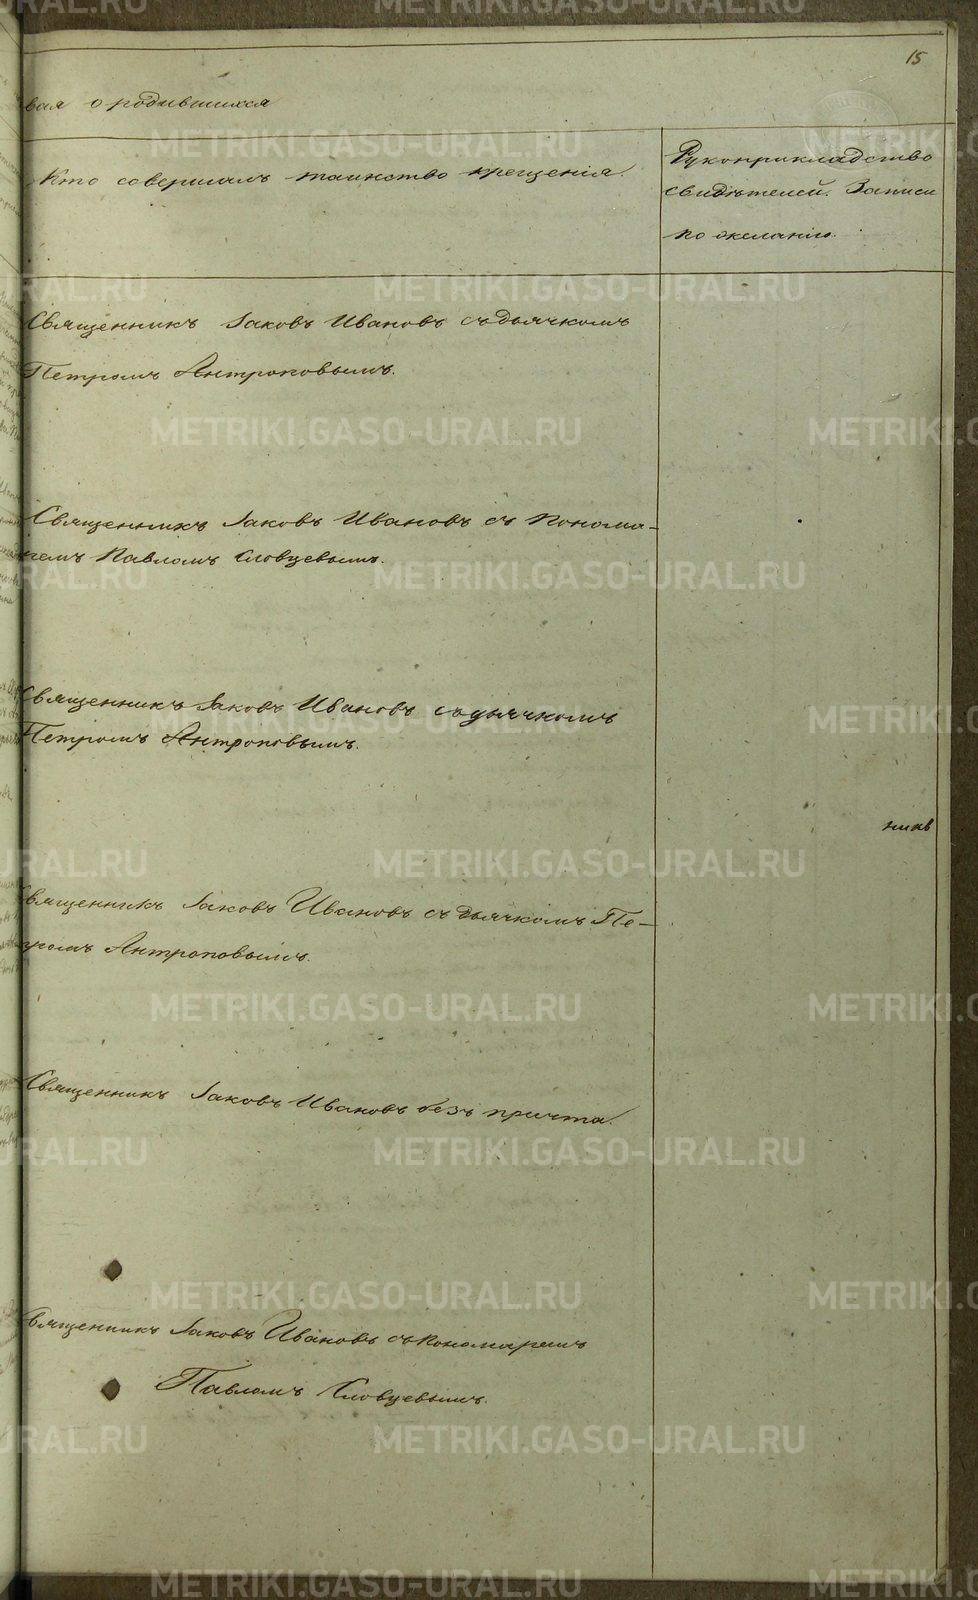 15
вая о родившихся
Кто совершалъ таинство крещенія.
Рукоприкладство
свидѣтелей. Записи
по желанію.
Священникъ Іаковъ Ивановъ съ дьячкомъ
Петромъ Антроповымъ.
Священникъ Іаковъ Ивановъ съ понома-
ремъ Павломъ Словцевымъ.
Священникъ Іаковъ Ивановъ съ дьячкомъ
Петромъ Антроповымъ.
Священникъ Іаковъ Ивановъ съ дьячкомъ Пе-
тромъ Антроповымъ.
Священникъ Іаковъ Ивановъ безъ причта.
Священникъ Іаковъ Ивановъ съ пономаремъ
Павломъ Словцевымъ.
METRIKI.GASO-URAL.RU